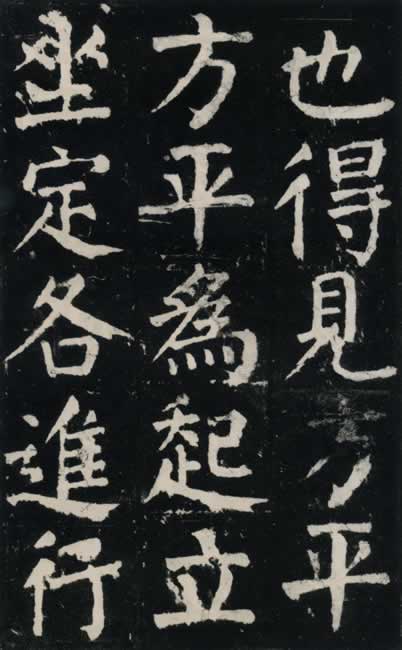 也得見方平
方平爲起立
坐定各進行